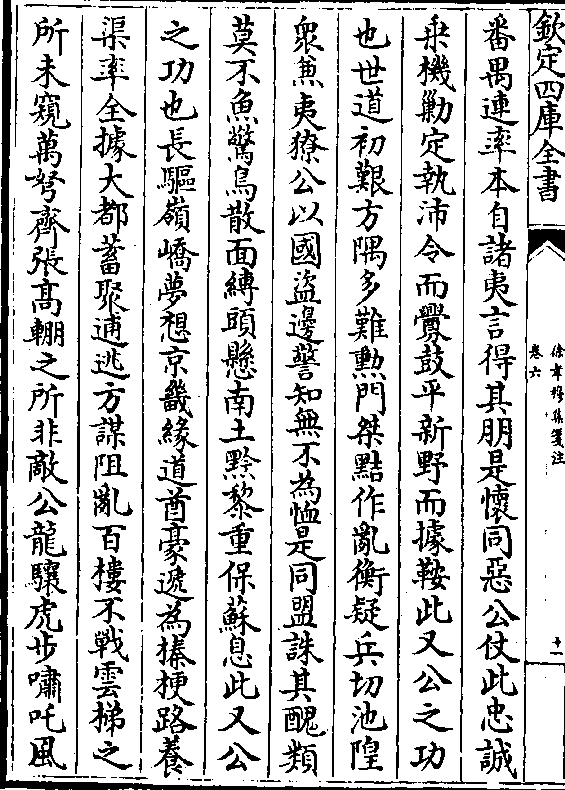 欽定四庫全書
徐孝穆集箋注
卷六
十一
番禺連率本自諸夷言得其朋是懷同惡公仗此忠誠
乗機勦定執沛令而釁鼓平新野而據鞍此又公之功
也世道初艱方隅多難勲門桀黠作亂衡疑兵切池隍
衆兼夷獠公以國盜邊警知無不為恤是同盟誅其醜類
莫不魚驚鳥散面縛頭懸南土黔黎重保蘇息此又公
之功也長驅嶺嶠夢想京畿緣道酋豪遞為榛梗路養
渠率全據大都蓄聚逋逃方謀阻亂百樓不戰雲梯之
所未窺萬弩齊張高輣之所非敵公龍驤虎步嘯吒風